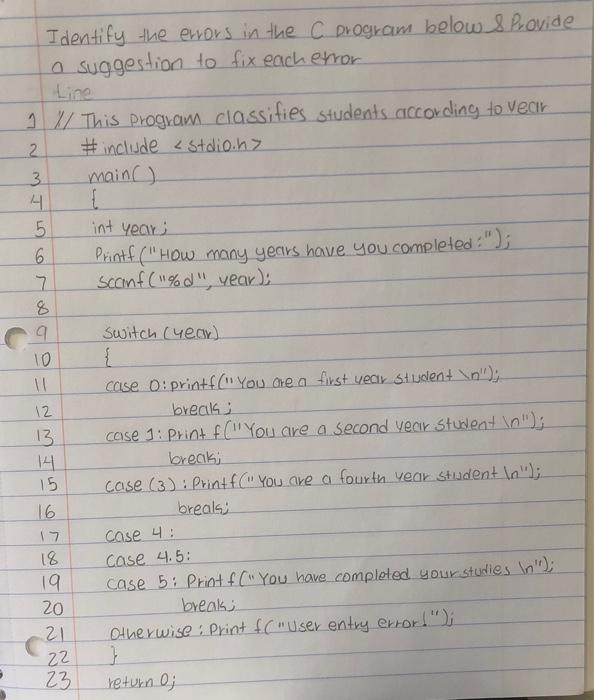 Identify the errors in the C program below & Provide
a suggestion to fix each error
Line
1 // This program classifies students according to year
2 # include <stdio.h>
3 main()
4 {
5 int year;
6 Printf("How many years have you completed:");
7 scanf("%d", year);
8
9 switch (year)
10 {
11 case 0: printf("You are a first year student \n");
12 break;
13 case 1: print f("You are a second year student \n");
14 break;
15 case (3): Printf("You are a fourth year student \n");
16 break;
17 case 4:
18 case 4.5:
19 case 5: Print f("You have completed your studies \n");
20 break;
21 otherwise: Print f("User entry error!");
22 }
23 return 0;